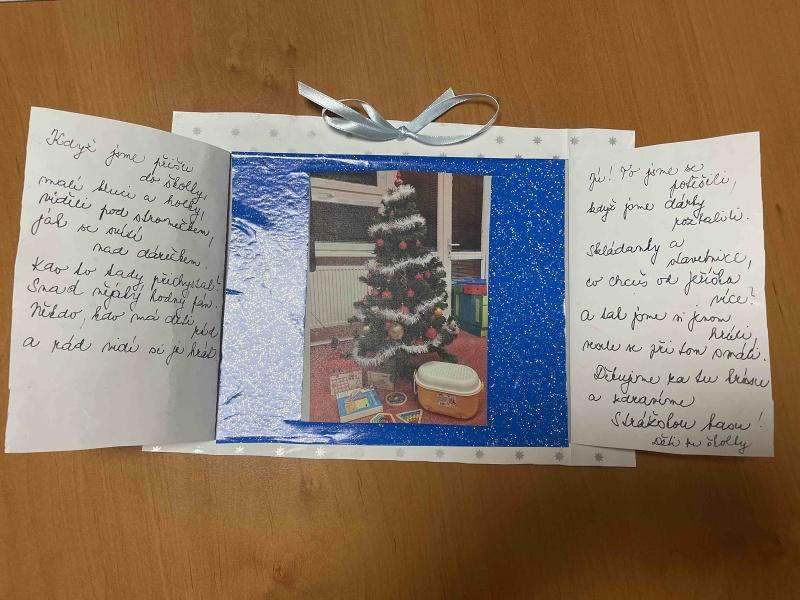 Když jsme přišli
do školky,
malí kluci a holky,
viděli pod stromečkem,
jak se svítí
nad dárečkem.
Kdo to tady přichystal?
Snad nějaký hodný pán.
Někdo, kdo má děti
rád
a rád vidí si je hrát
Jů! To jsme se
potěšili,
když jsme dárky
rozbalili.
Skládanky a
stavebnice,
co chceš od Ježíška
více?
a tak jsme si jenom
hráli,
se při tom smáli.
Děkujeme za tu krásu
a zdravíme
basu!
Děti ze školky